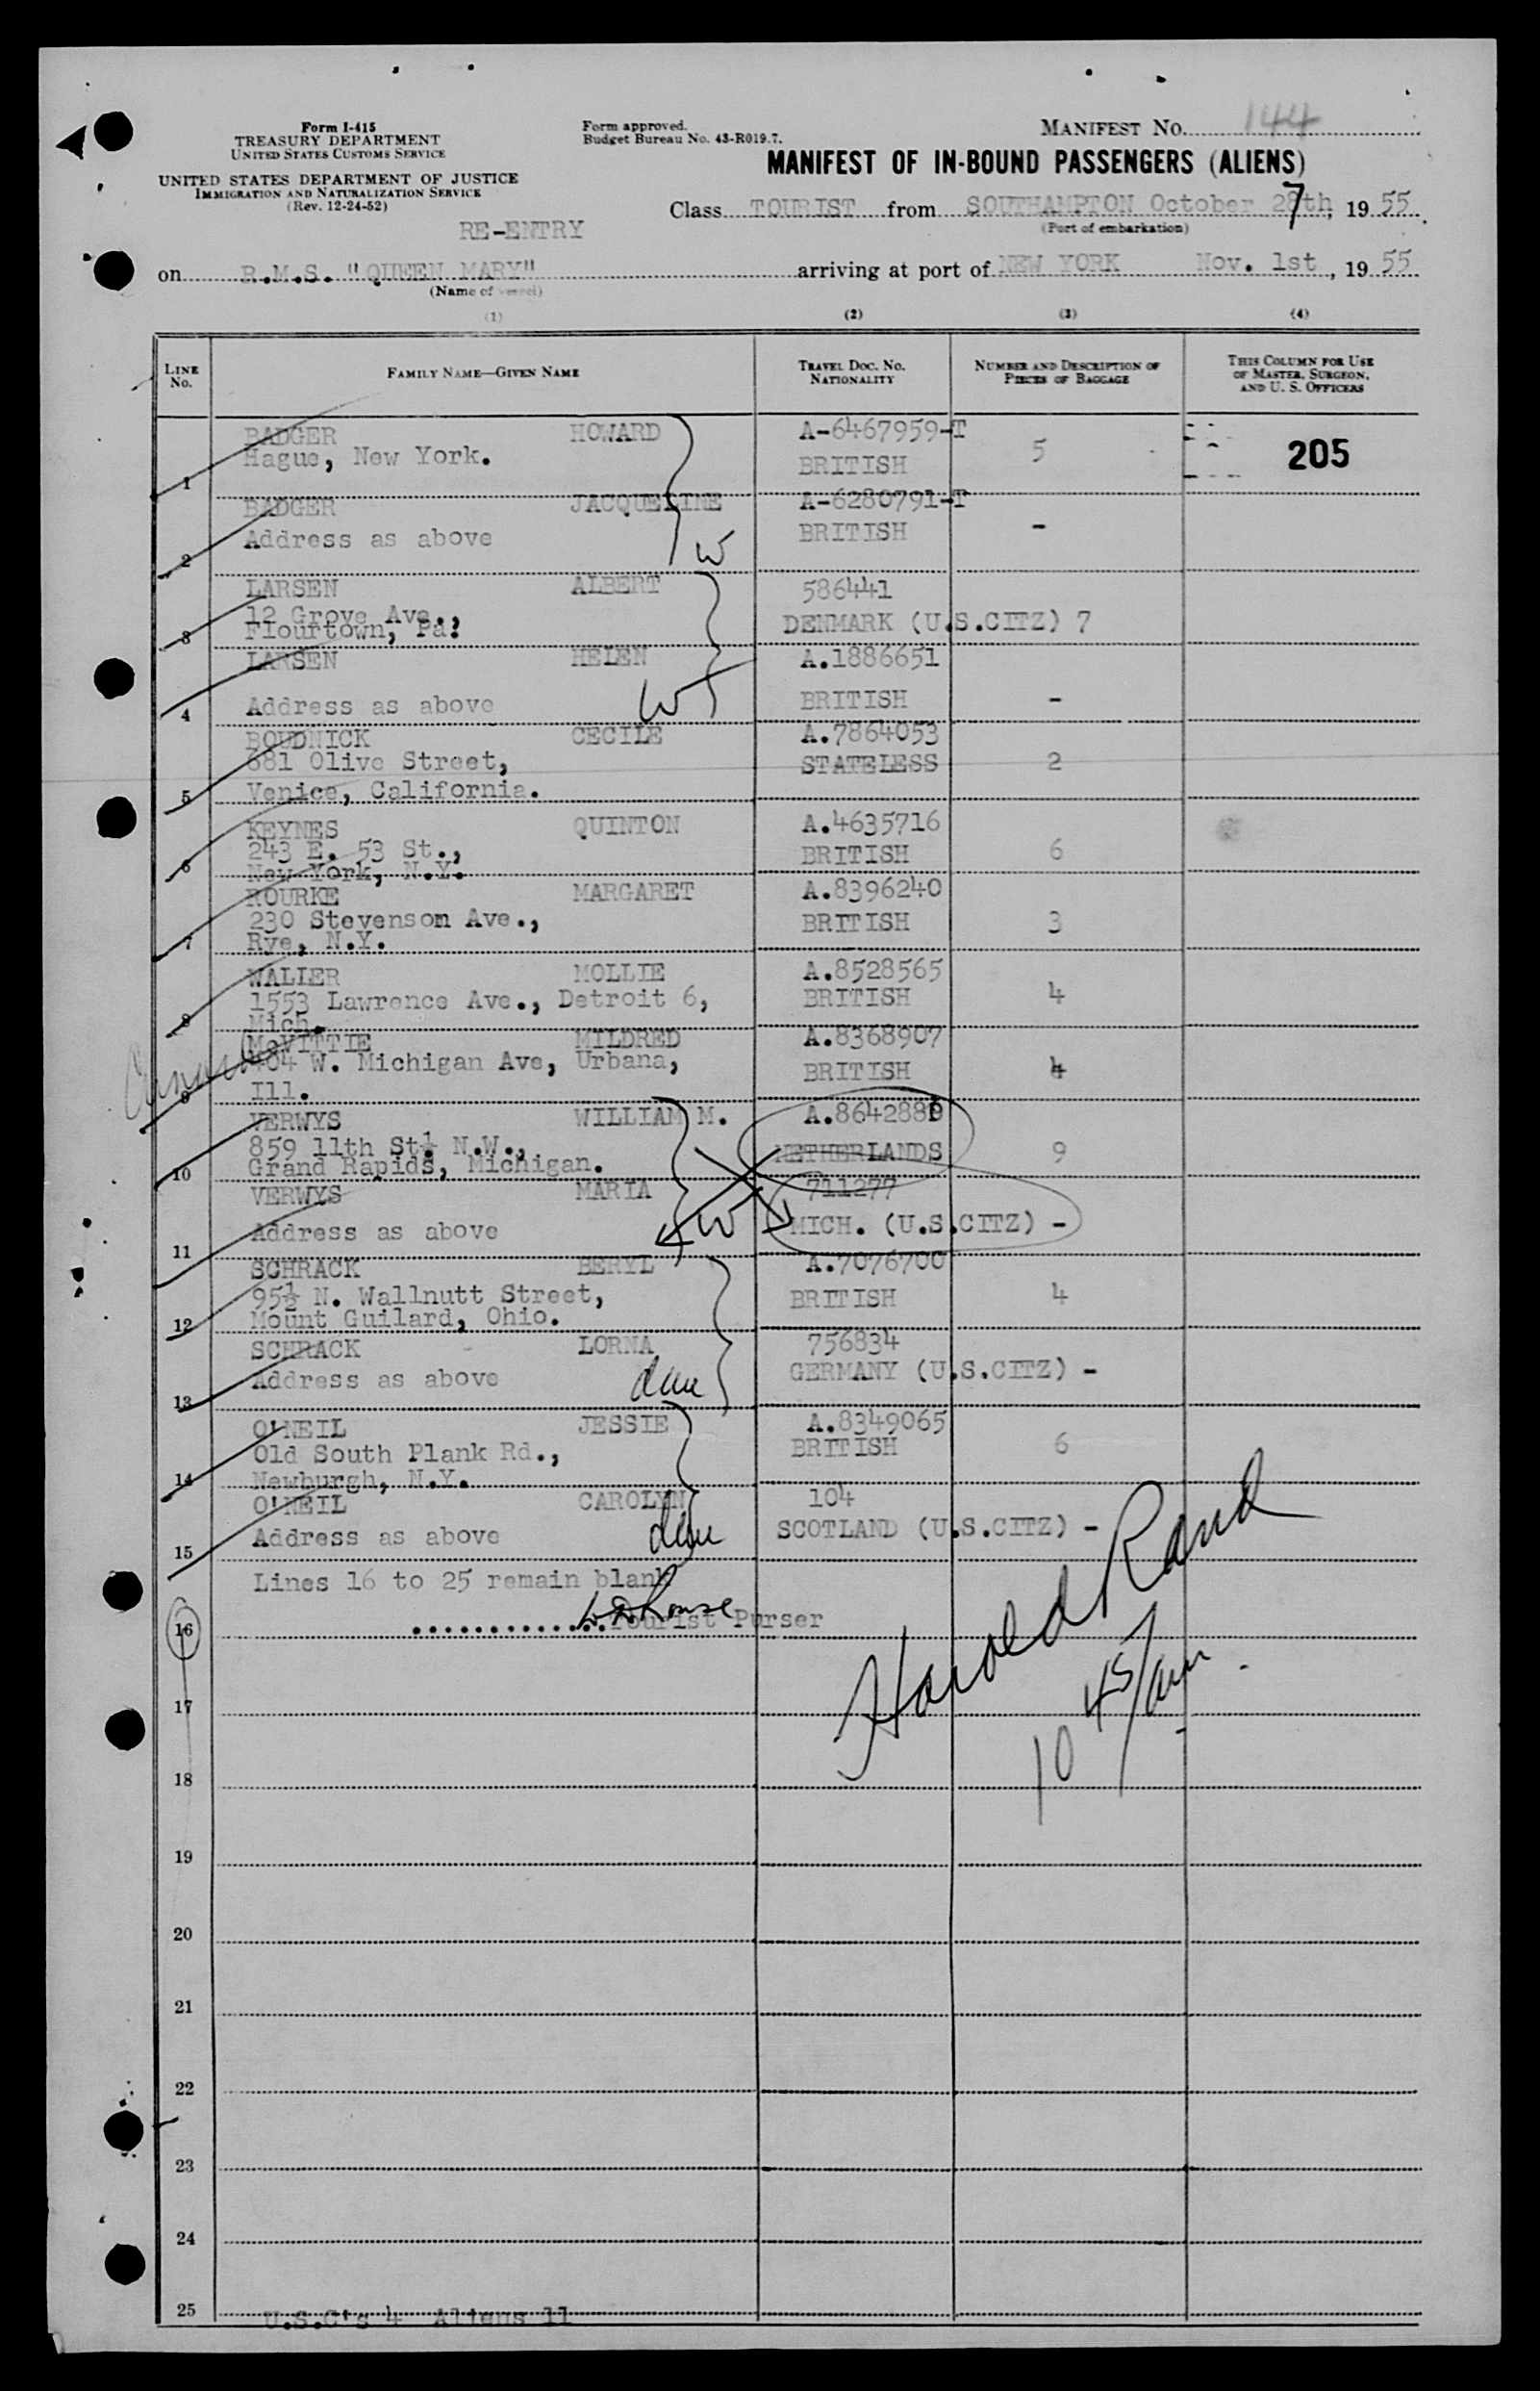 Form I-415
TREASURY DEPARTMENT
UNITED STATES CUSTOMS SERVICE
UNITED STATES DEPARTMENT OF JUSTICE
IMMIGRATION AND NATURALIZATION SERVICE
(Rev. 12-24-52)
Form approved.
Budget Bureau No. 43-R019.7.
MANIFEST NO. 144
MANIFEST OF IN-BOUND PASSENGERS (ALIENS)
Class TOURIST from SOUTHAMPTON October 27th, 1955
(Port of embarkation)
RE-ENTRY
on R.M.S. "QUEEN MARY" arriving at port of NEW YORK Nov. 1st, 1955
(Name of vessel)
(1) (2) (3) (4)
LINE No. FAMILY NAME—GIVEN NAME TRAVEL DOC. NO. NATIONALITY NUMBER AND DESCRIPTION OF PIECES OF BAGGAGE THIS COLUMN FOR USE OF MASTER, SURGEON, AND U. S. OFFICERS
BADGER HOWARD A-6467959-T
Hague, New York. BRITISH 5 205
1
BADGER JACQUELINE A-6280791-T
Address as above BRITISH -
2 W
LARSEN ALBERT 586441
12 Grove Ave.,
Flourtown, Pa. DENMARK (U.S.CITZ) 7
3
LARSEN HELEN A.1886651
Address as above BRITISH -
4 W
BOUDNICK CECILE A.7864053
681 Olive Street, STATELESS 2
5 Venice, California.
KEYNES QUINTON A.4635716
243 E. 53 St., BRITISH 6
6 New York, N.Y.
ROURKE MARGARET A.8396240
230 Stevenson Ave., BRITISH 3
7 Rye, N.Y.
WALIER MOLLIE A.8528565
1553 Lawrence Ave., Detroit 6, BRITISH 4
8 Mich.
McVITTIE MILDRED A.8368907
404 W. Michigan Ave, Urbana, BRITISH 4
9 Ill.
VERWYS WILLIAM M. A.864288
859 11th St. N.W., NETHERLANDS 9
10 Grand Rapids, Michigan.
VERWYS MARIA 711277
Address as above W MICH. (U.S.CITZ) -
11
SCHRACK BERYL A.7076700
95½ N. Wallnutt Street, BRITISH 4
12 Mount Guilard, Ohio.
SCHRACK LORNA 756834
Address as above GERMANY (U.S.CITZ) -
13
O'NEIL JESSIE A.8349065
Old South Plank Rd., BRITISH 6
14 Newburgh, N.Y.
O'NEIL CAROLYN 104
Address as above SCOTLAND (U.S.CITZ) -
15
Lines 16 to 25 remain blank
16 Tourist Purser
Harold Rand
10 45/am
17
18
19
20
21
22
23
24
25 U.S.C's 4 Aliens 11